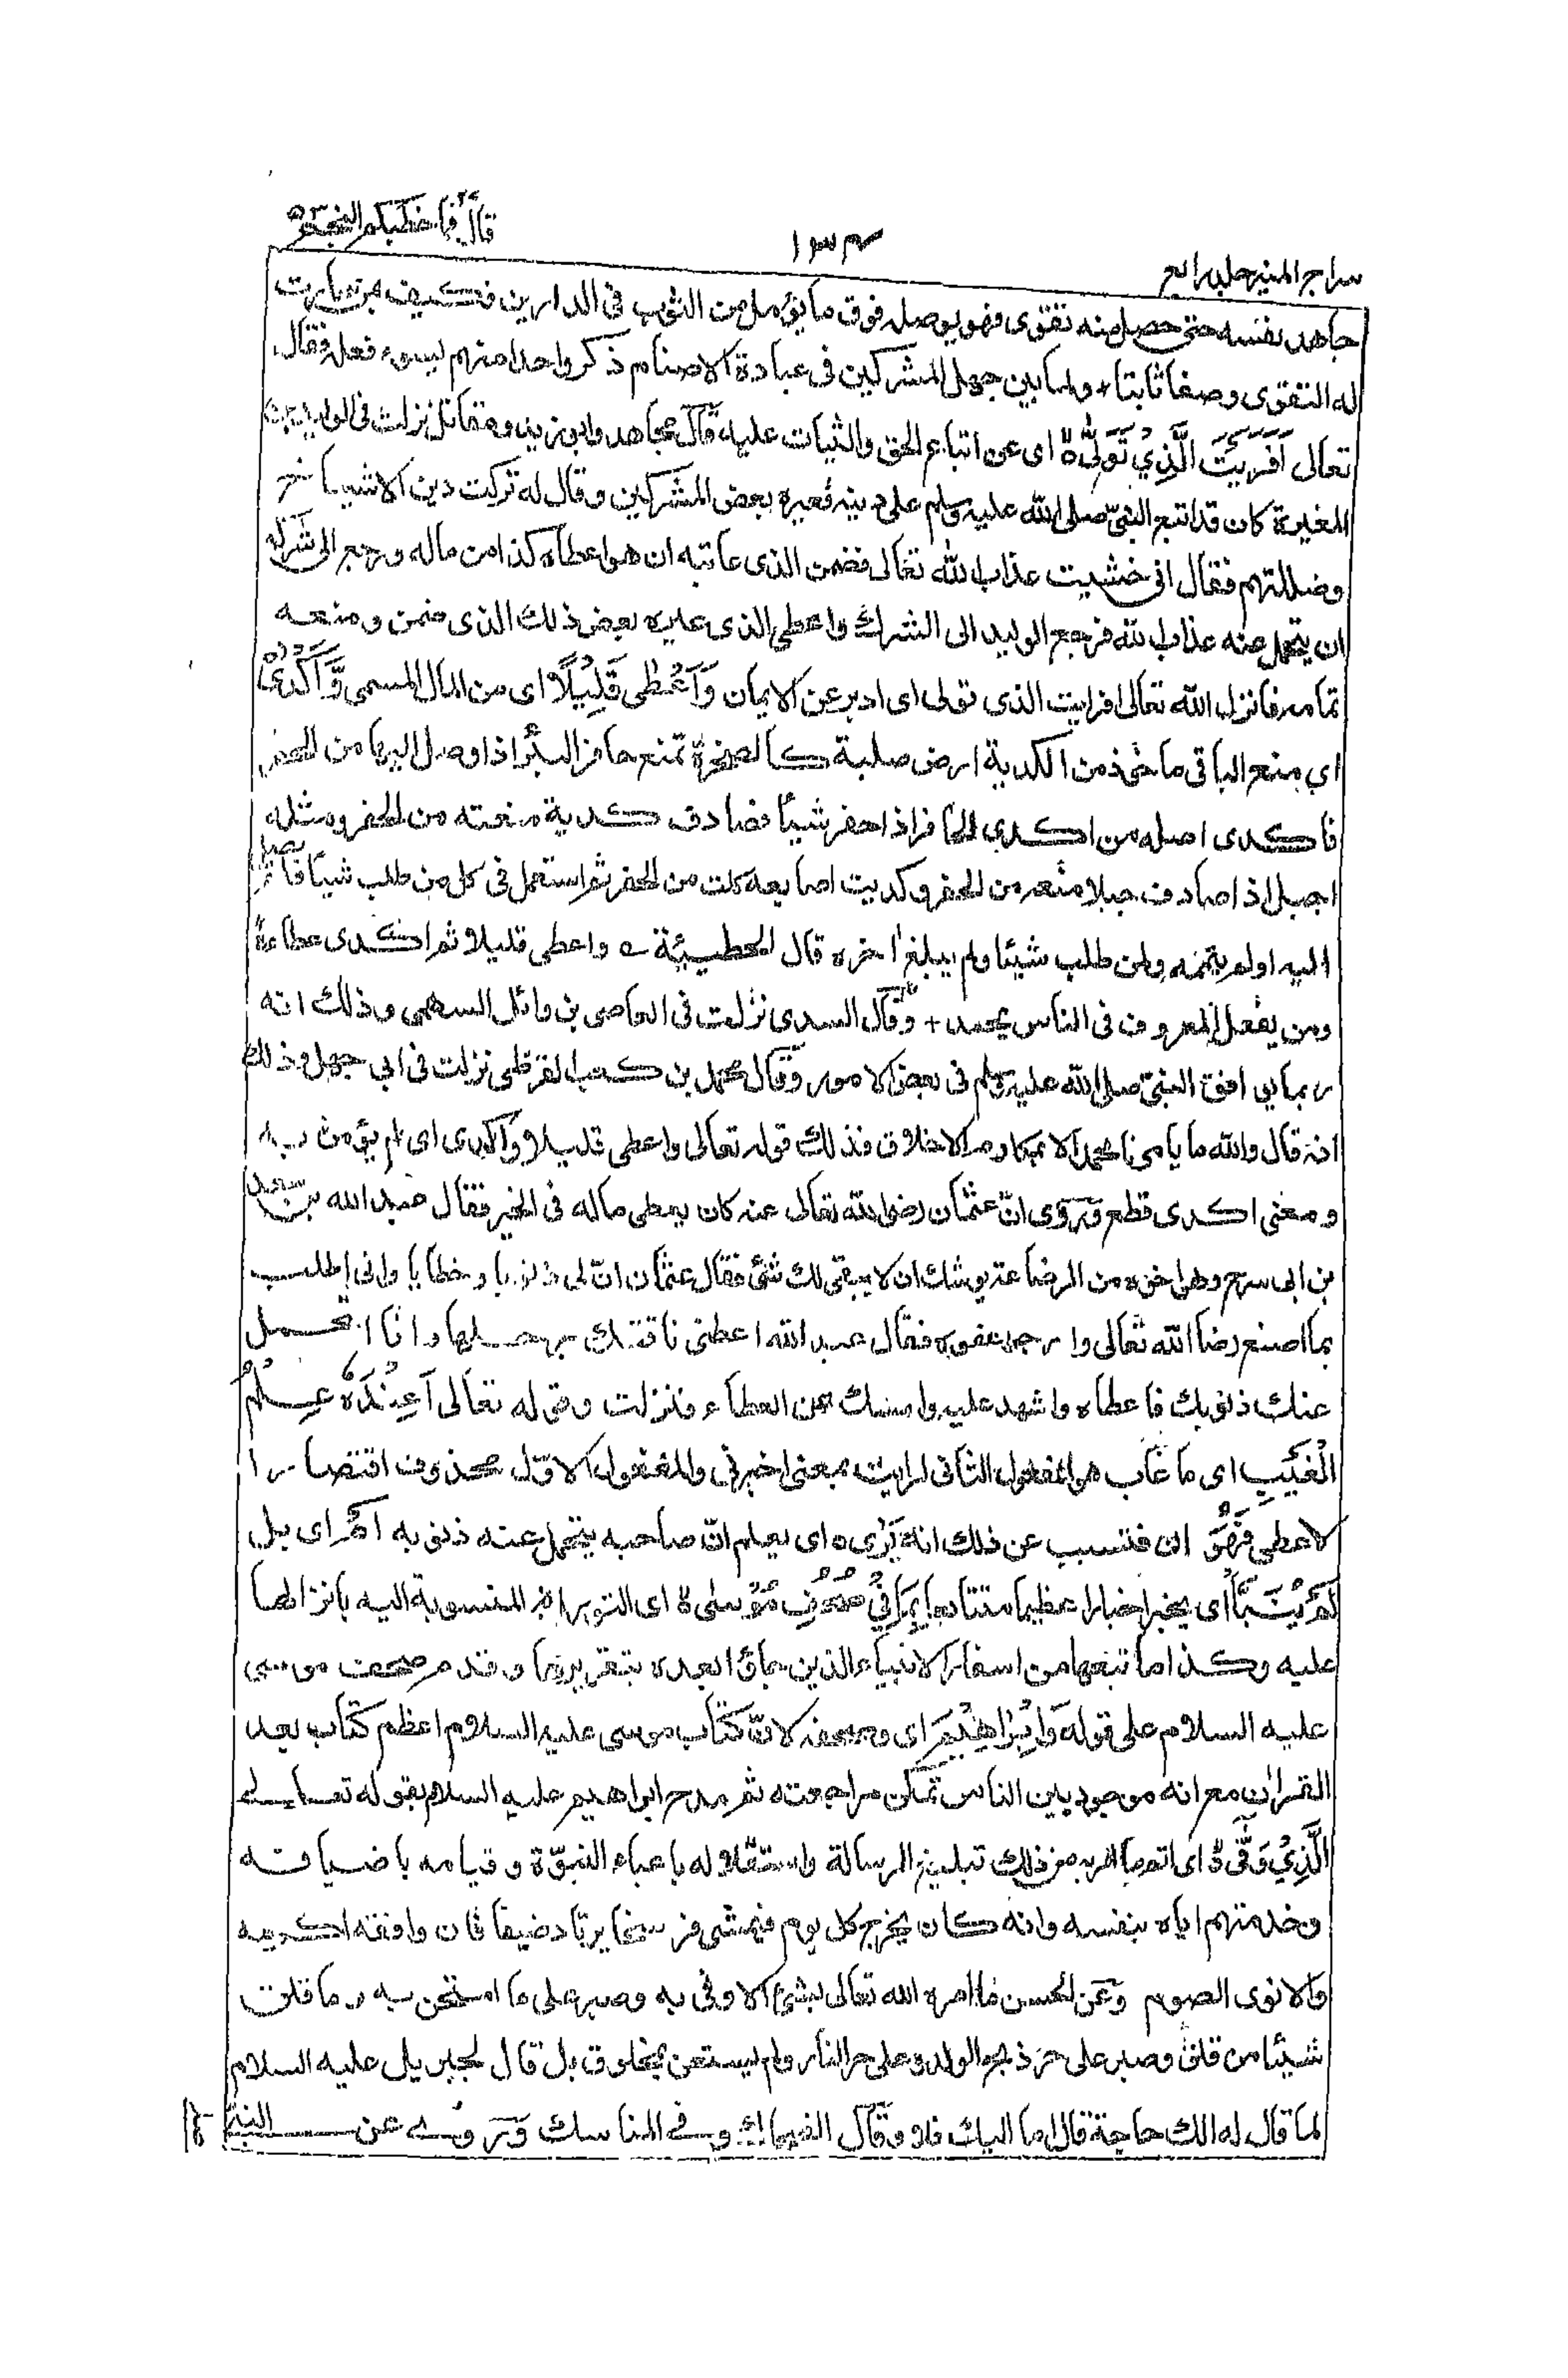 قال فما خطبكم ٢٧ النجم ٥٣
١٣٤
سراج المنير جلد رابع
جاهد نفسه حتى حصل منه تقوى فهو يوصله فوق ما يؤمل من الثواب فى الدارين فكيف بمن صارت
له التقوى وصفا ثابتا + ولما بين جهل المشركين فى عبادة الاصنام ذكر واحدا منهم بسوء فعله فقال
تعالى اَفَرَءَيْتَ الَّذِيْ تَوَلّٰى ۙ اى عن اتباع الحق والثبات عليه قال مجاهد وابو زيد ومقاتل نزلت فى الوليد بن
المغيرة كان قد اتبع النبيّ صلى الله عليه وسلم على دينه فعيره بعض المشركين وقال له تركت دين الاشياخ
وضللتهم فقال انى خشيت عذاب الله تعالى فضمن الذى عاتبه ان هو اعطاه كذا من ماله ورجع الى شركه
ان يتحمل عنه عذاب الله فرجع الوليد الى الشرك واعطى الذى عيره بعض ذلك الذى ضمن ومنعه
تمامه فانزل الله تعالى افرايت الذى تولى اى ادبر عن الايمان وَاَعْطٰى قَلِيْلًا اى من المال المسمى وَّاَكْدٰى
اى منع الباقى ماخوذ من الكدية ارض صلبة كالصخرة تمنع حافر البئر اذا وصل اليها من الحفر
فاكدى اصله من اكدى الحافر اذا حفر شيئا فصادف كدية منعته من الحفر ومثله
اجبل اذا صادف جبلا منعه من الحفر وكديت اصابعه كلت من الحفر ثم استعمل فى كل من طلب شيئا فلم يصل
اليه او لم يتممه ولمن طلب شيئا ولم يبلغ اخره قال الحطيئة ؎ واعطى قليلا ثم اكدى عطاءه
ومن يفعل المعروف فى الناس يحمد + وقال السدى نزلت فى العاصى بن وائل السهمى وذلك انه
ربما يوافق النبيّ صلى الله عليه وسلم فى بعض الامور وقال محمد بن كعب القرظى نزلت فى ابى جهل وذلك
انه قال والله ما يامرنا محمد الا بمكارم الاخلاق فذلك قوله تعالى واعطى قليلا واكدى اى لم يؤمن به
ومعنى اكدى قطع وروى انّ عثمان رضى الله تعالى عنه كان يعطى ماله فى الخير فقال عبد الله بن سعد
بن ابى سرح وهو اخوه من الرضاعة يوشك ان لا يبقى لك شئ فقال عثمان انّ لى ذنوبا وخطايا وانى اطلب
بما اصنع رضا الله تعالى وارجو عفوه فقال عبد الله اعطنى ناقتك برحلها وانا اتحمل
عنك ذنوبك فاعطاه واشهد عليه وامسك عن العطاء فنزلت وقوله تعالى اَعِنْدَهٗ عِلْمُ
الْغَيْبِ اى ما غاب هو المفعول الثانى لرايت بمعنى اخبرنى والمفعول الاوّل محذوف اقتصارا
لاعطى فَهُوَ اى فتسبب عن ذلك انه يَرٰى ه اى يعلم انّ صاحبه يتحمل عنه ذنوبه اَمْ اى بل
لَمْ يُنَبَّاْ اى يخبر اخبارا عظيما متتابعا بِمَا فِيْ صُحُفِ مُوْسٰى ۙ اى التوراة المنسوبة اليه بانزالها
عليه وكذا ما تبعها من اسفار الانبياء الذين جاؤا بعده بتقريرها وقدم صحف موسى
عليه السلام على قوله وَاِبْرٰهِيْمَ اى وصحفه لانّ كتاب موسى عليه السلام اعظم كتاب بعد
القران مع انه موجود بين الناس تمكن مراجعته ثم مدح ابراهيم عليه السلام بقوله تعالى
الَّذِيْ وَفّٰى ۙ اى اتم ما امر به من ذلك تبليغ الرسالة واستقلاله باعباء النبوّة وقيامه باضيافه
وخدمتهم اياه بنفسه وانه كان يخرج كل يوم فيمشى فرسخا يرتاد ضيفا فان وافقه اكرمه
والا نوى الصوم وعن الحسن ما امره الله تعالى بشئ الا وفى به وصبر على ما امتحن به وما قلق
شيئا من قلق وصبر على حرّ ذبح الولد وعلى حر النار ولم يستعن بمخلوق بل قال لجبريل عليه السلام
لما قال له الك حاجة قال اما اليك فلا وقال الضحاك وفى المناسك وروى عن النبيّ